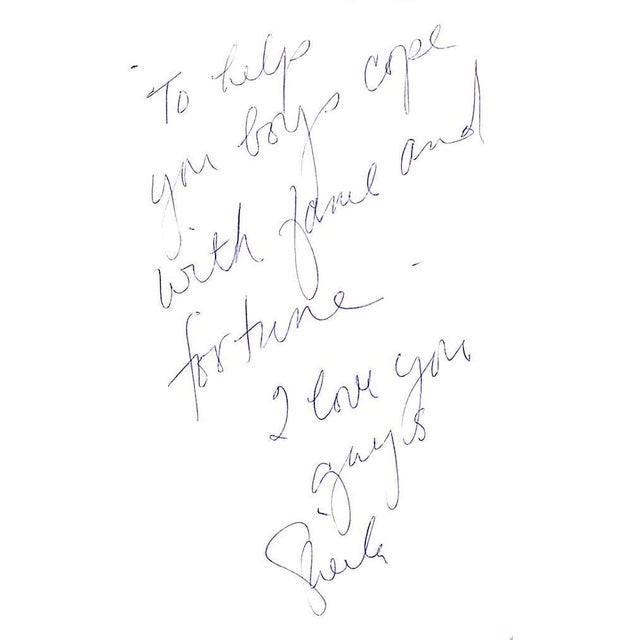 To help
you boys cope
with fame and
fortune -
I love you
guys
Sheila